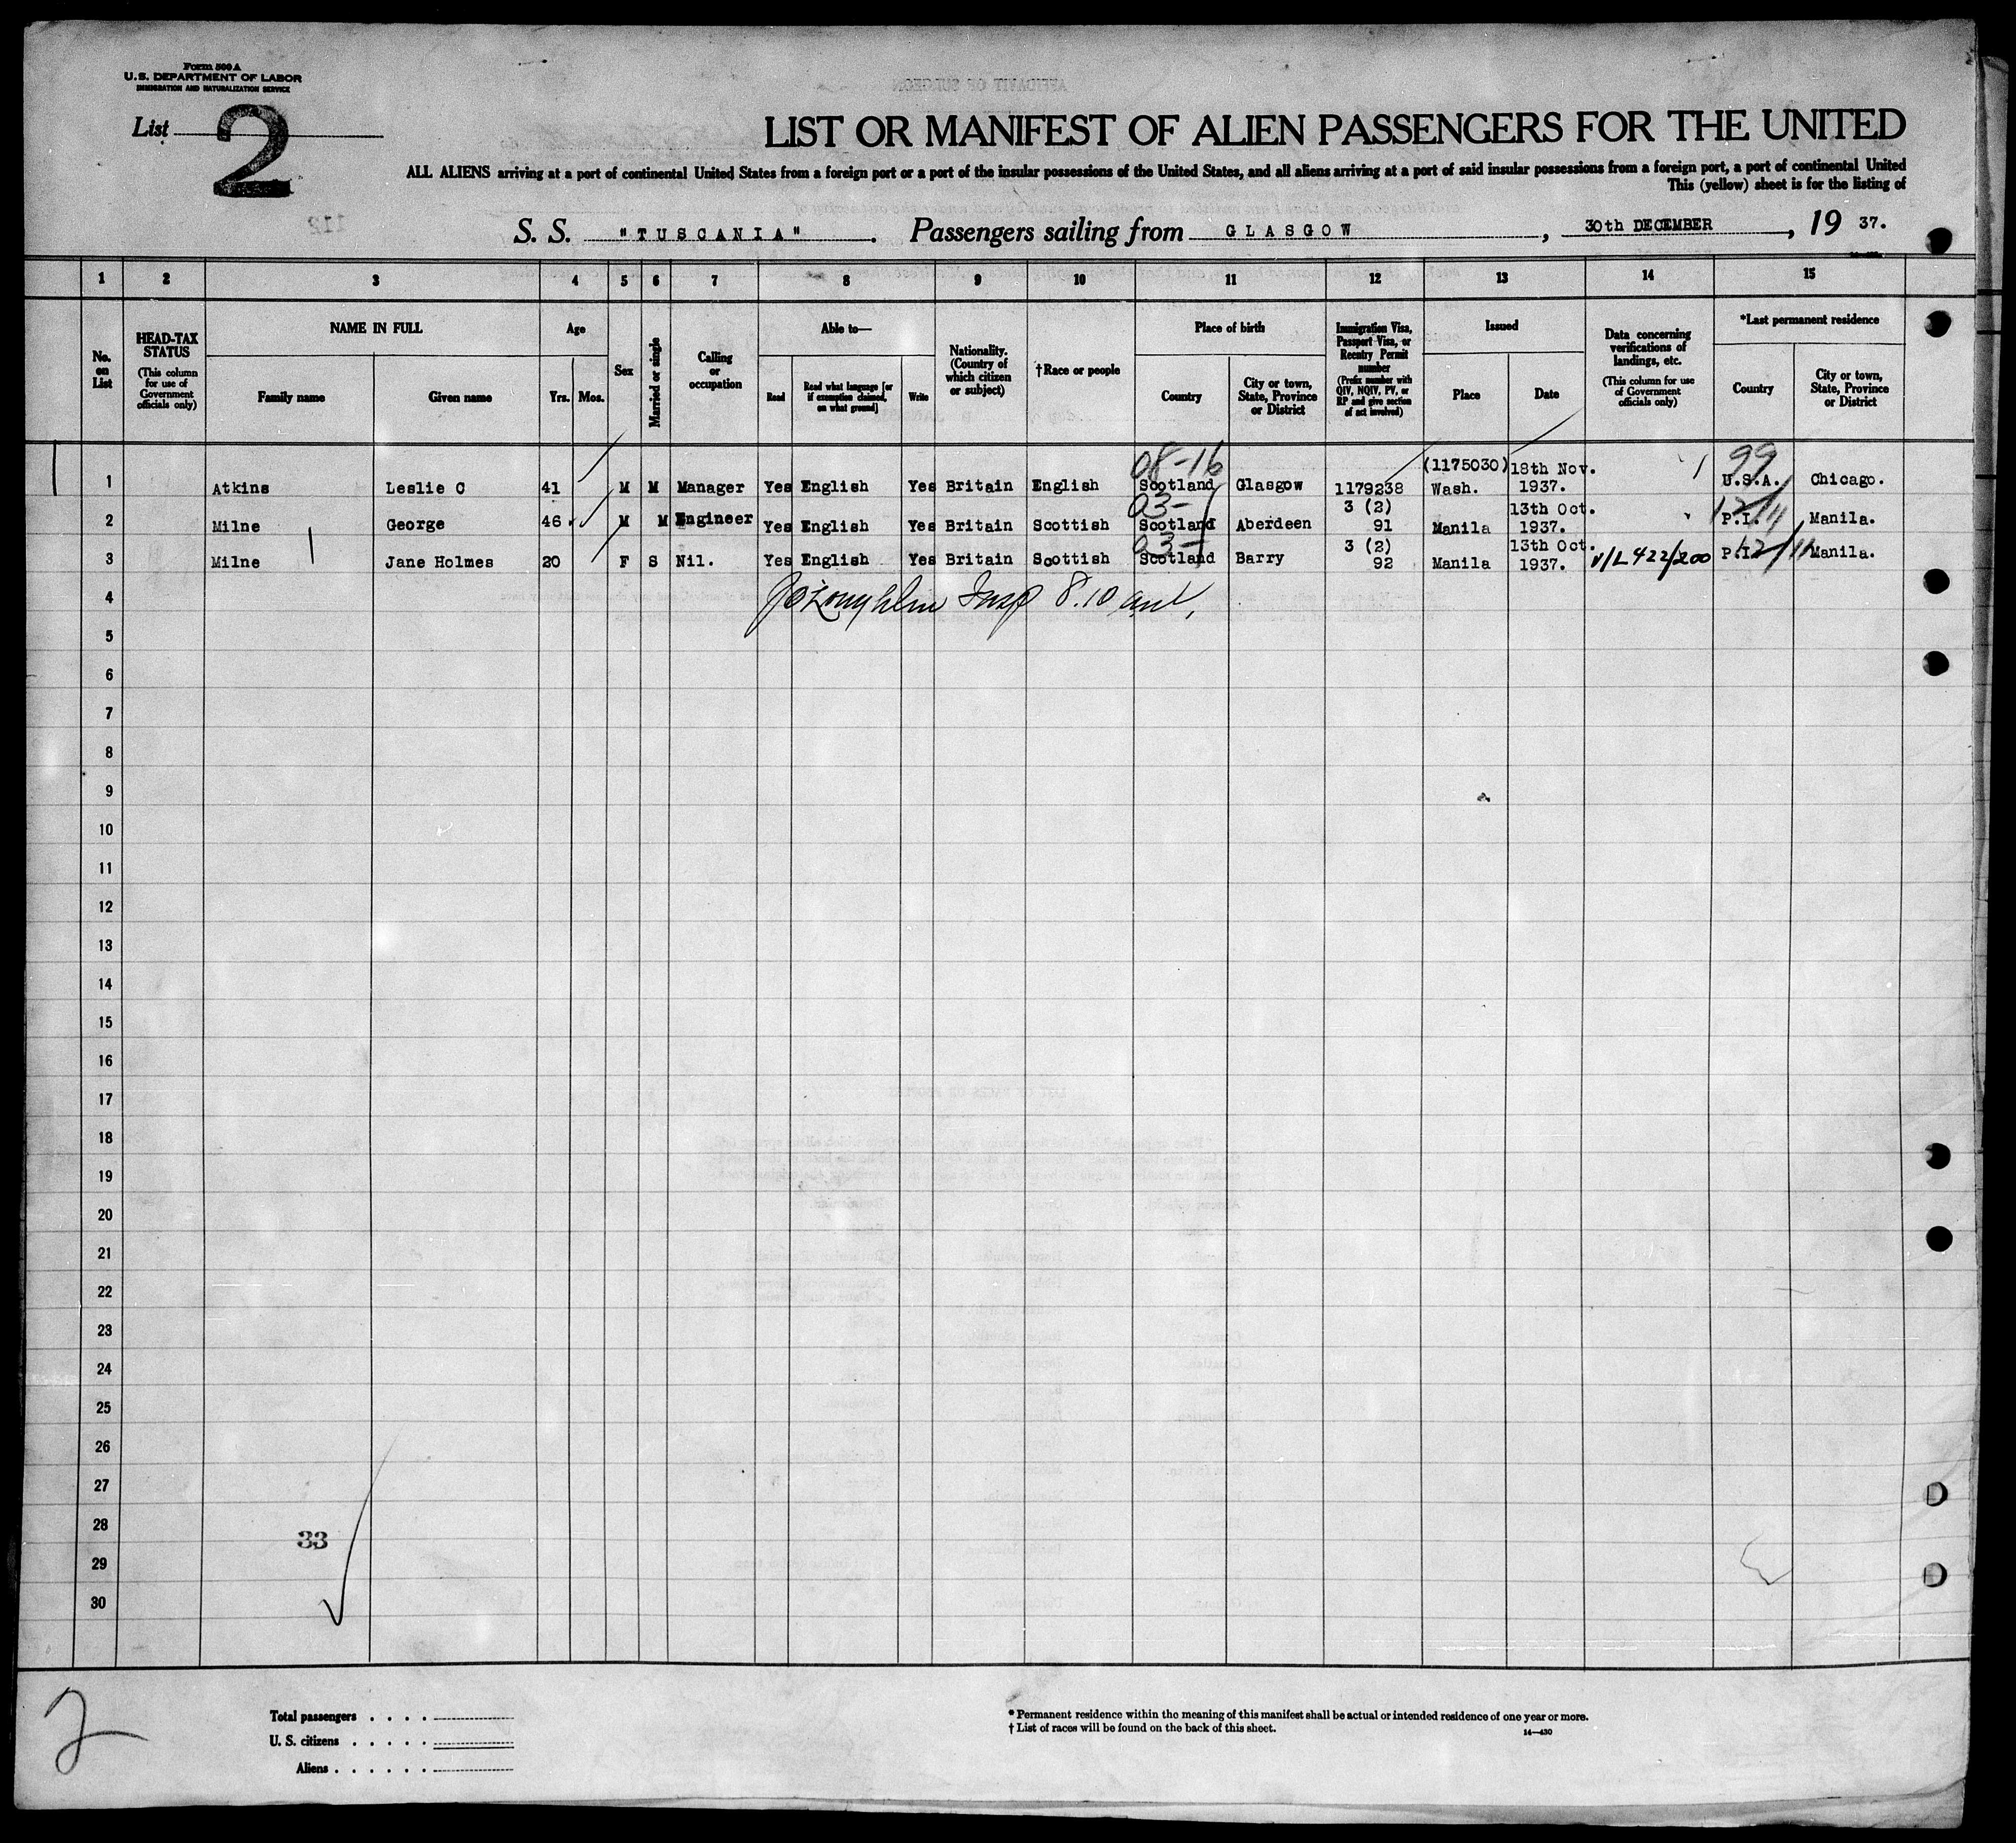 Form 500 A
U.S. DEPARTMENT OF LABOR
IMMIGRATION AND NATURALIZATION SERVICE
List 2
LIST OR MANIFEST OF ALIEN PASSENGERS FOR THE UNITED
ALL ALIENS arriving at a port of continental United States from a foreign port or a port of the insular possessions of the United States, and all aliens arriving at a port of said insular possessions from a foreign port, a port of continental United
This (yellow) sheet is for the listing of
S. S. "TUSCANIA". Passengers sailing from GLASGOW, 30th DECEMBER, 19 37.
1 2 3 4 5 6 7 8 9 10 11 12 13 14 15
No. on List
HEAD-TAX STATUS
(This column for use of Government officials only)
NAME IN FULL
Family name Given name
Age
Yrs. Mos.
Sex
Married or single
Calling or occupation
Able to—
Read
Read what language [or if exemption claimed, on what ground]
Write
Nationality. (Country of which citizen or subject)
†Race or people
Place of birth
Country
City or town, State, Province or District
Immigration Visa, Passport Visa, or Reentry Permit number
(Prefix number with QIV, NQIV, PV, or RP and give section of act involved)
Issued
Place Date
Data concerning verifications of landings, etc.
(This column for use of Government officials only)
*Last permanent residence
Country
City or town, State, Province or District
08-16 (1175030) 18th Nov. 99
1 Atkins Leslie C 41 M M Manager Yes English Yes Britain English Scotland Glasgow 1179238 Wash. 1937. U.S.A. Chicago.
03- 3 (2) 13th Oct.
2 Milne George 46 M M Engineer Yes English Yes Britain Scottish Scotland Aberdeen 91 Manila 1937. P.I. Manila.
03- 3 (2) 13th Oct.
3 Milne Jane Holmes 20 F S Nil. Yes English Yes Britain Scottish Scotland Barry 92 Manila 1937. V/L 422/200 P.I. Manila.
4 Insp 8.10
5
6
7
8
9
10
11
12
13
14
15
16
17
18
19
20
21
22
23
24
25
26
27
28
33
29
30
2
Total passengers . . . .
U. S. citizens . . . . .
Aliens . . . . . .
* Permanent residence within the meaning of this manifest shall be actual or intended residence of one year or more.
† List of races will be found on the back of this sheet.
14—430